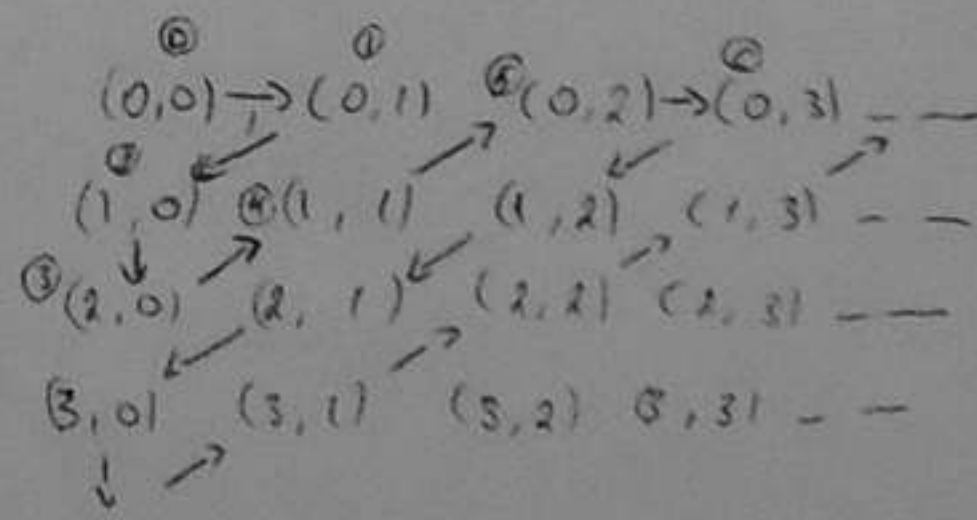 ⓪ ① ⑥
(0,0) → (0,1) ⑤ (0,2) → (0,3) _ __
②
(1,0) ④ (1,1) (1,2) (1,3) _ __
③ (2,0) (2,1) (2,2) (2,3) _ __
(3,0) (3,1) (3,2) 3,3) _ __